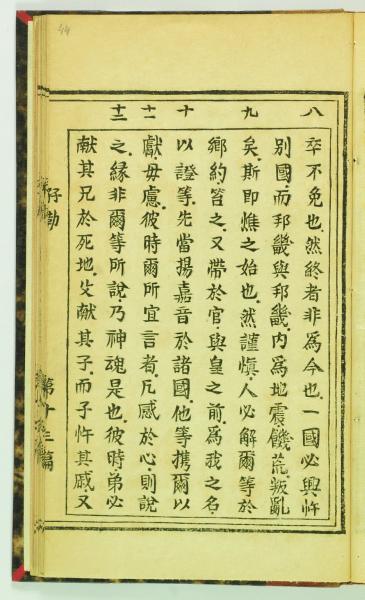 44
八 九 十 十一 十二
卒不免也然終者非為今也一國必興忤
別國而邦畿與邦畿內為地震饑荒叛亂
矣斯即憔之始也然謹慎人必解爾等於
鄉約笞之又帶於官與皇之前為我之名
以證等先當揚嘉音於諸國他等携爾以
獻毋慮彼時爾所宜言者凡感於心則說
之緣非爾等所說乃神魂是也彼時弟必
献其兄於死地父献其子而子忤其戚又
第十三篇